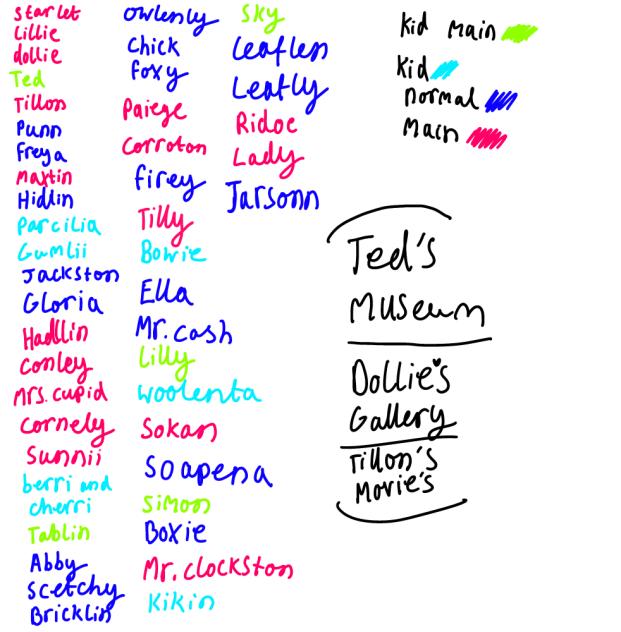 starlet
Lillie
dollie
Ted
Tillon
Punn
Freya
Martin
Hidlin
Parcilia
Gumlii
Jackston
Gloria
Hadllin
Conley
Mrs. cupid
Cornely
Sunnii
berri and
cherri
Tablin
Abby
Scetchy
Bricklin
Owlenly
Chick
foxy
Paiege
Corroton
firey
Tilly
Bowie
Ella
Mr. cash
Lilly
Woolenta
Sokan
Soapena
Simon
Boxie
Mr. clockston
Kikin
Sky
Leaflen
Leafly
Ridoe
Lady
Jarsonn
Kid Main
Kid
Normal
Main
Ted's
Museum
Dollie's
Gallery
Tillon's
Movie's